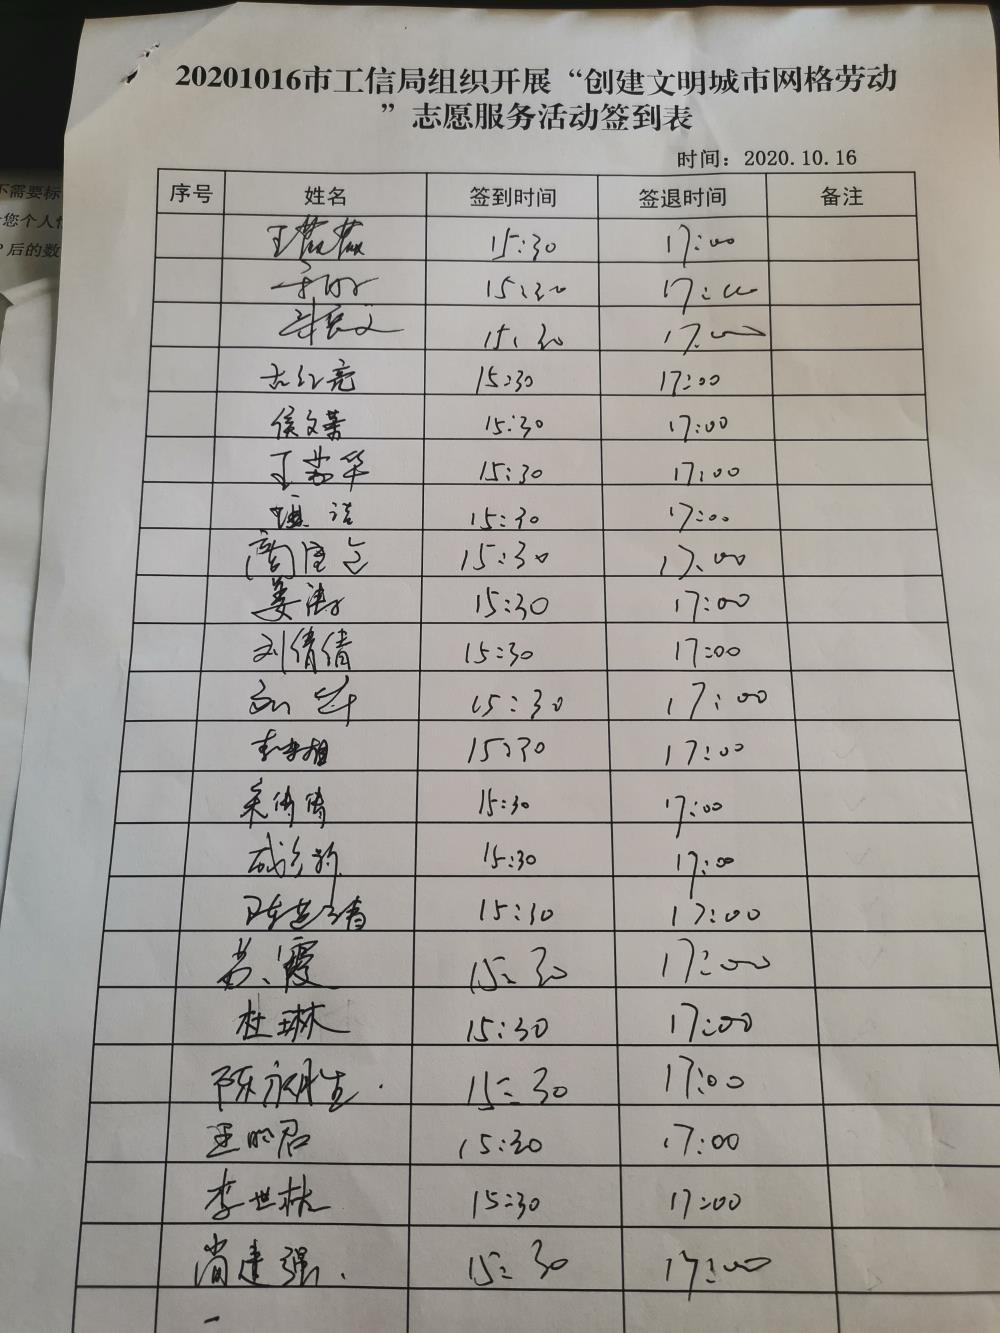 20201016市工信局组织开展“创建文明城市网格劳动
”志愿服务活动签到表
时间：2020.10.16
不需要标
您个人
后的数
序号 姓名 签到时间 签退时间 备注
15:30 17:00
15:30 17:00
15:30 17:00
古红亮 15:30 17:00
侯文菁 15:30 17:00
王苏华 15:30 17:00
15:30 17:00
15:30 17:00
姜涛 15:30 17:00
刘倩倩 15:30 17:00
15:30 17:00
15:30 17:00
15:30 17:00
15:30 17:00
15:30 17:00
苏霞 15:30 17:00
杜琳 15:30 17:00
陈永生 15:30 17:00
王明君 15:30 17:00
李世林 15:30 17:00
尚建强 15:30 17:00